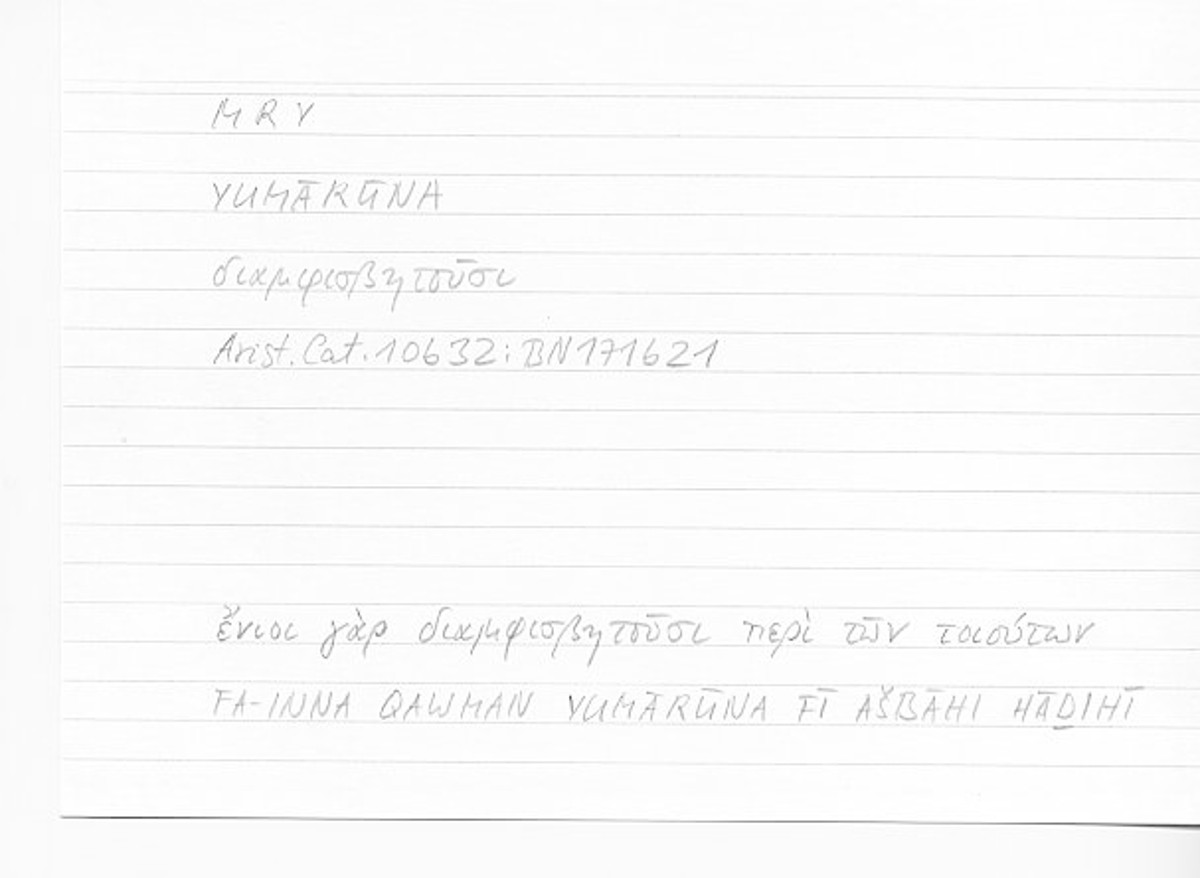 MRY
YUMĀRŪNA
διαμφισβητοῦσι
Arist. Cat. 10632; BN171621
ἔνιοι γὰρ διαμφισβητοῦσι περὶ τῶν τοιούτων
FA-INNA QAWMAN YUMĀRŪNA FĪ AŠBĀHI HĀḎIHĪ